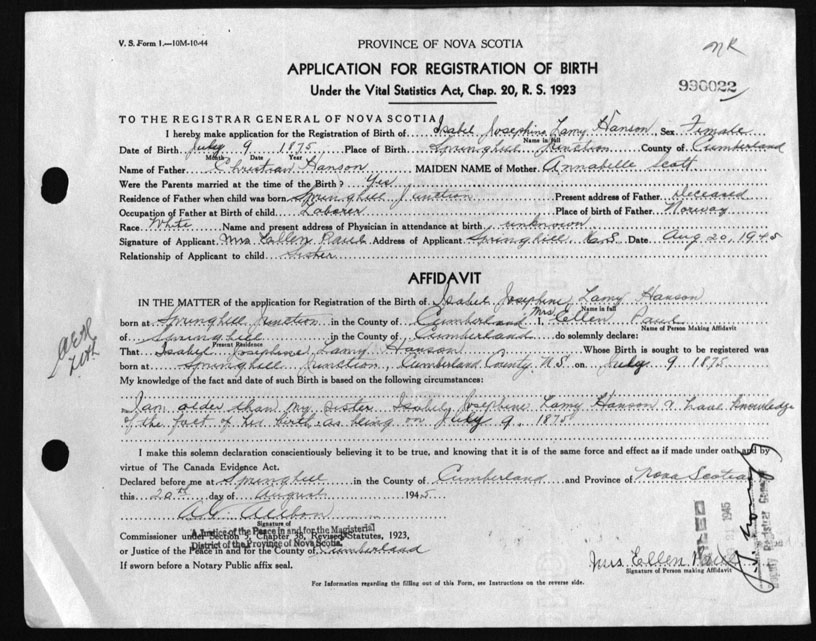 V. S. Form 1.—10M-10-44
NR
PROVINCE OF NOVA SCOTIA
APPLICATION FOR REGISTRATION OF BIRTH
996022
Under the Vital Statistics Act, Chap. 20, R. S. 1923
TO THE REGISTRAR GENERAL OF NOVA SCOTIA
I hereby make application for the Registration of Birth of Isabel Josephine Lamy Hanson Sex Female
Name in Full
Date of Birth July 9 1875 Place of Birth Springhill Junction County of Cumberland
Month Date Year
Name of Father Christian Hanson MAIDEN NAME of Mother Annabelle Scott
Were the Parents married at the time of the Birth? Yes
Residence of Father when child was born Springhill Junction Present address of Father Deceased
Occupation of Father at Birth of child Laborer Place of birth of Father Norway
Race White Name and present address of Physician in attendance at birth unknown
Signature of Applicant Mrs Ellen Paul Address of Applicant Springhill N.S. Date Aug 20, 1945
Relationship of Applicant to child Sister
AFFIDAVIT
IN THE MATTER of the application for Registration of the Birth of Isabel Josephine Lamy Hanson
Name in full
born at Springhill Junction in the County of Cumberland I, Mrs. Ellen Paul
Name of Person Making Affidavit
of Springhill in the County of Cumberland do solemnly declare:
Present Residence
That Isabel Josephine Lamy Hanson Whose Birth is sought to be registered was
born at Springhill Junction, Cumberland County N.S. on July 9 1875
My knowledge of the fact and date of such Birth is based on the following circumstances:
I am older than my sister Isabel Josephine Lamy Hanson & have knowledge
of the fact of her birth as being on July 9, 1875
I make this solemn declaration conscientiously believing it to be true, and knowing that it is of the same force and effect as if made under oath and by
virtue of The Canada Evidence Act.
Declared before me at Springhill in the County of Cumberland and Province of Nova Scotia
this 20th day of August 1945
Signature of
A Justice of the Peace in and for the Magisterial
Commissioner under Section 5, Chapter 38, Revised Statutes, 1923,
District of the Province of Nova Scotia.
or Justice of the Peace in and for the County of Cumberland
If sworn before a Notary Public affix seal.
Mrs Ellen Paul
Signature of Person making Affidavit
Deputy Registrar General
For Information regarding the filling out of this Form, see Instructions on the reverse side.